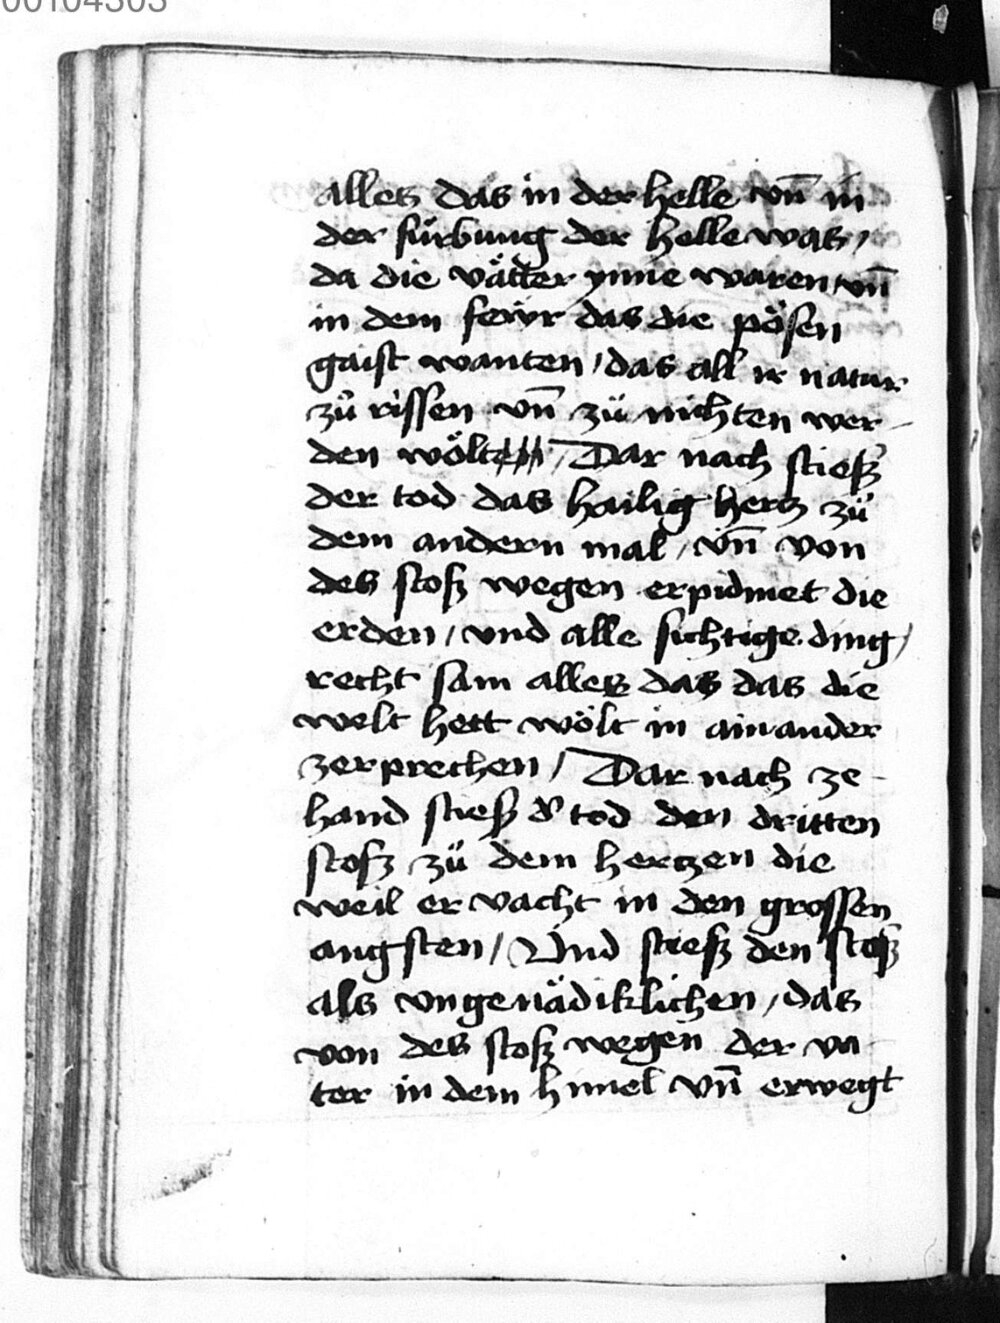 00104303
alles das in der helle vn̄ in
der fürbung der helle was /
da die vätter ynne waren / vn̄
in dem fewr das die pösen
gaist wanten / das all ir natur
zů rissen vn̄ zü nichten wer-
den wölt / Dar nach stiesz
der tod das hailig hertz zü
dem andern mal / vn̄ von
des stosz wegen erpidmet die
erden / und alle sichtige ding /
recht sam alles das das die
welt hett wölt in ainander
zerprechen / Dar nach ze-
hand stiesz d' tod den dritten
stosz zü dem hertzen die
weil er vacht in den grossen
angsten / Und stiesz den stosz
als ungenädiklichen / das
von des stosz wegen der va-
ter in dem himel vn̄ erwegt